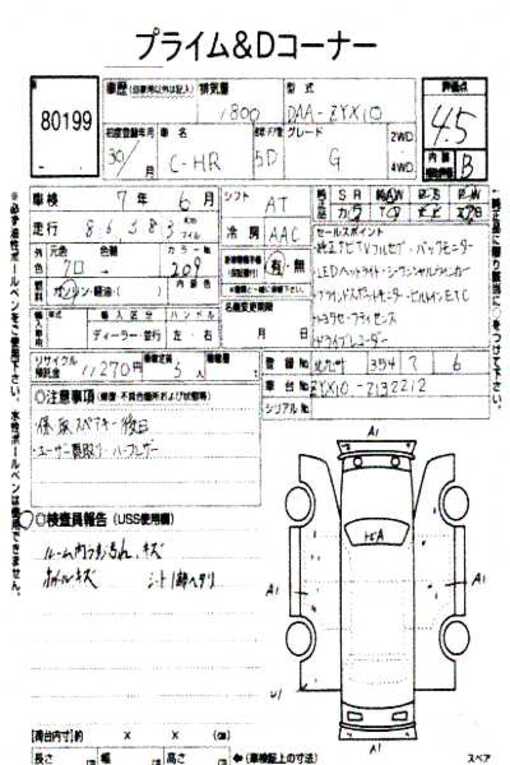 プライム&Dコーナー
80199
車歴 (自家用以外は記入)
排気量
1800
型式
DAA-ZYX10
評価点
4.5
内装
B
初度登録年月
30/ 月
車名
C-HR
5D
グレード
G
2WD
4WD
車検 7年 6月
シフト AT
走行 86,583
冷房 AAC
外色
元色
色替
カラーNo
クロ → 209
内装色
燃料 ガソリン・軽油・( )
有・無
名義変更期限
月 日
輸入車用
年式
輸入区分 ハンドル
ディーラー・並行 左・右
セールスポイント
・純正ナビTVフルセグ・バックモニター
・LEDヘッドライト・シーケンシャルウィンカー
・ブラインドスポットモニター・ビルトインETC
・トヨタセーフティセンス
・ドライブレコーダー
リサイクル預託金 11270円
乗車定員 5人
積載量 t
登録No 北九州 354 7 6
車台No ZYX10-2132212
シリアルNo
◎注意事項 (修復・不具合箇所および状態等)
保・取・スペアキー後日
・ユーザー買取り・ハーフレザー
◎検査員報告 (USS使用欄)
ルーム内ウス汚れ、キズ
ホイルキズ シート1部ヘタリ
A1
トビA
A1
A1
U1
A1
[荷台内寸]約 × × (cm)
長さ 幅 高さ ←(車検証上の寸法)
スペア
※必ず油性ボールペンをご使用下さい。水性ボールペンは使用できません。